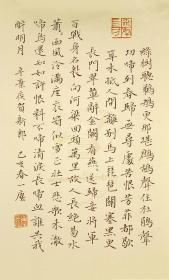 綠樹聽鵜鴂更那堪鷓鴣聲住杜鵑聲
切啼到春歸無尋處苦恨芳菲都歇
算未抵人間離別馬上琵琶關塞黑更
長門翠輦辭金闕看燕燕送歸妾將軍
百戰身名裂向河梁回頭萬里故人長絕易水
蕭蕭西風冷滿座衣冠似雪正壯士悲歌未徹
啼鳥還知如許恨料不啼清淚長啼血誰共我
醉明月 辛棄疾賀新郎 己亥春一塵